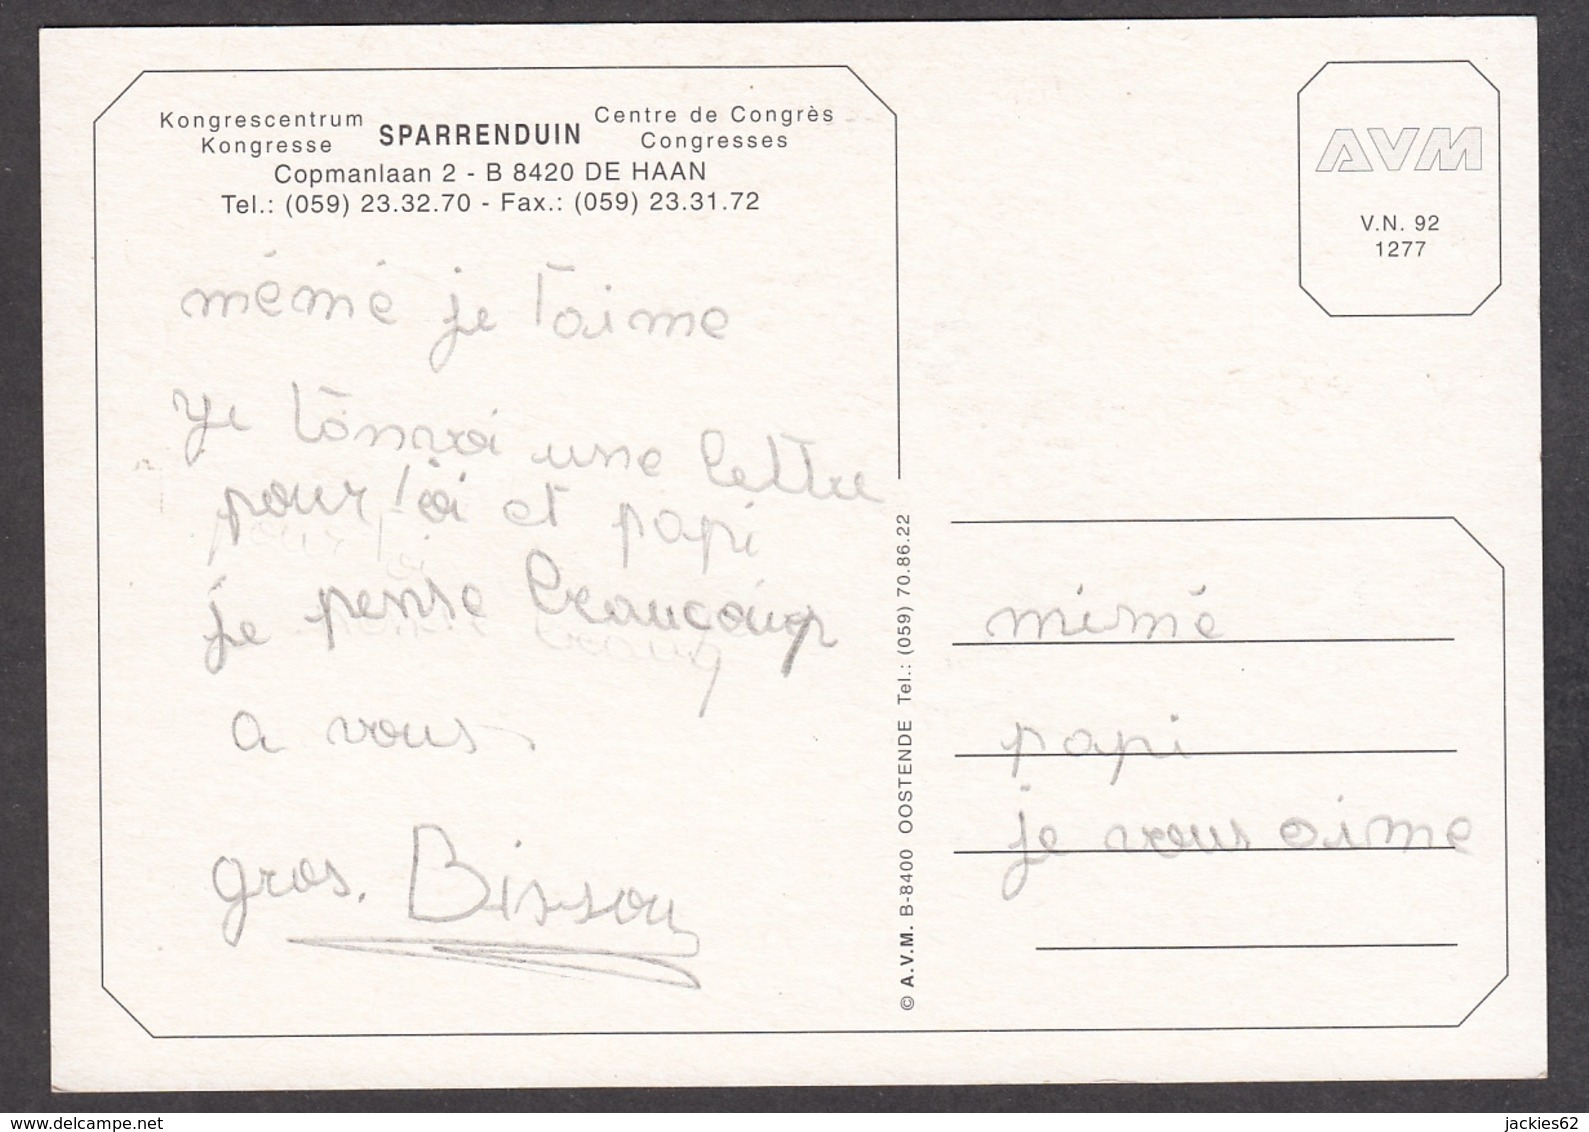 Kongrescentrum
Kongresse
SPARRENDUIN
Centre de Congrès
Congresses
Copmanlaan 2 - B 8420 DE HAAN
Tel.: (059) 23.32.70 - Fax.: (059) 23.31.72
mémé je t'aime
je t'onvoi une lettre
pour toi et papi
je pense beaucoup
a vous
gros. Bissou
AVM
V.N. 92
1277
© A.V.M. B-8400 OOSTENDE Tel.: (059) 70.86.22
mémé
papi
je vous aime
www.delcampe.net
jackies62